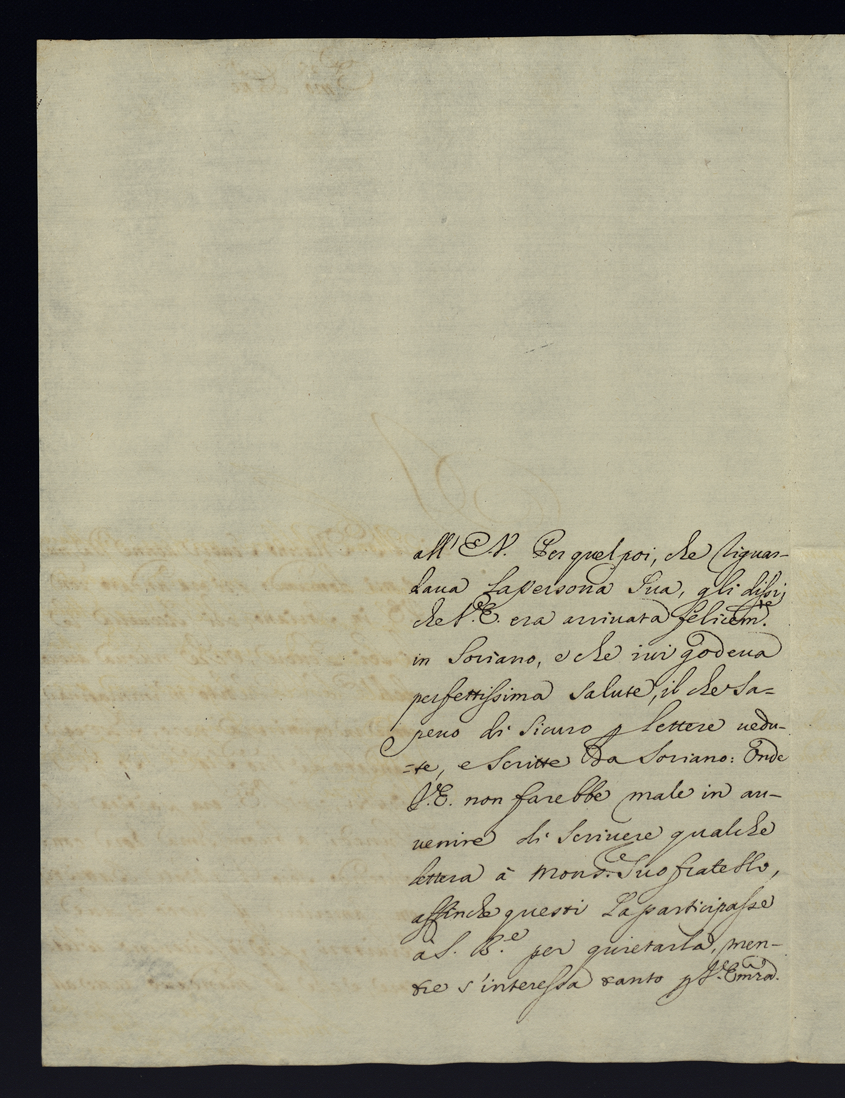 all' E. N. Per quel poi, che riguar-
dava La persona Sua, gli dissi,
che V. E. era arrivata felicem.te
in Soriano, e che ivi godeva
perfettissima salute, il che sa-
pevo di sicuro p lettere vedu-
-te, e scritte da Soriano: Onde
V. E. non farebbe male in av-
venire di scrivere qualche
lettera à Mons.re Suo fratello,
affinche questi La participasse
à S. B.e per quietarla, men-
tre s'interessa tanto p V. Emza.